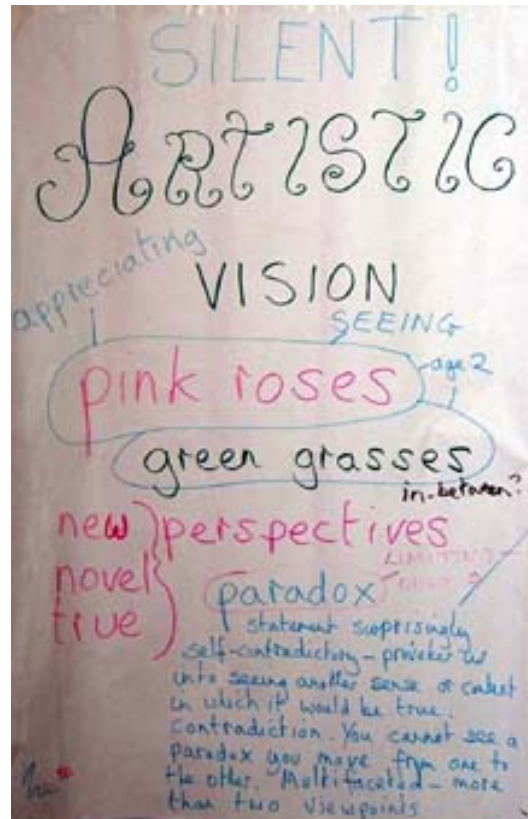 SILENT!
ARTISTIC
appreciating
VISION
SEEING
pink roses
age 2
green grasses
in-between?
new
novel
true
perspectives
LIMITING
paradox
statement surprisingly
self-contradictory – provokes us
into seeing another sense or context
in which it would be true.
Contradiction. You cannot see a
paradox you move from one to
the other. Multifaceted – more
than two viewpoints